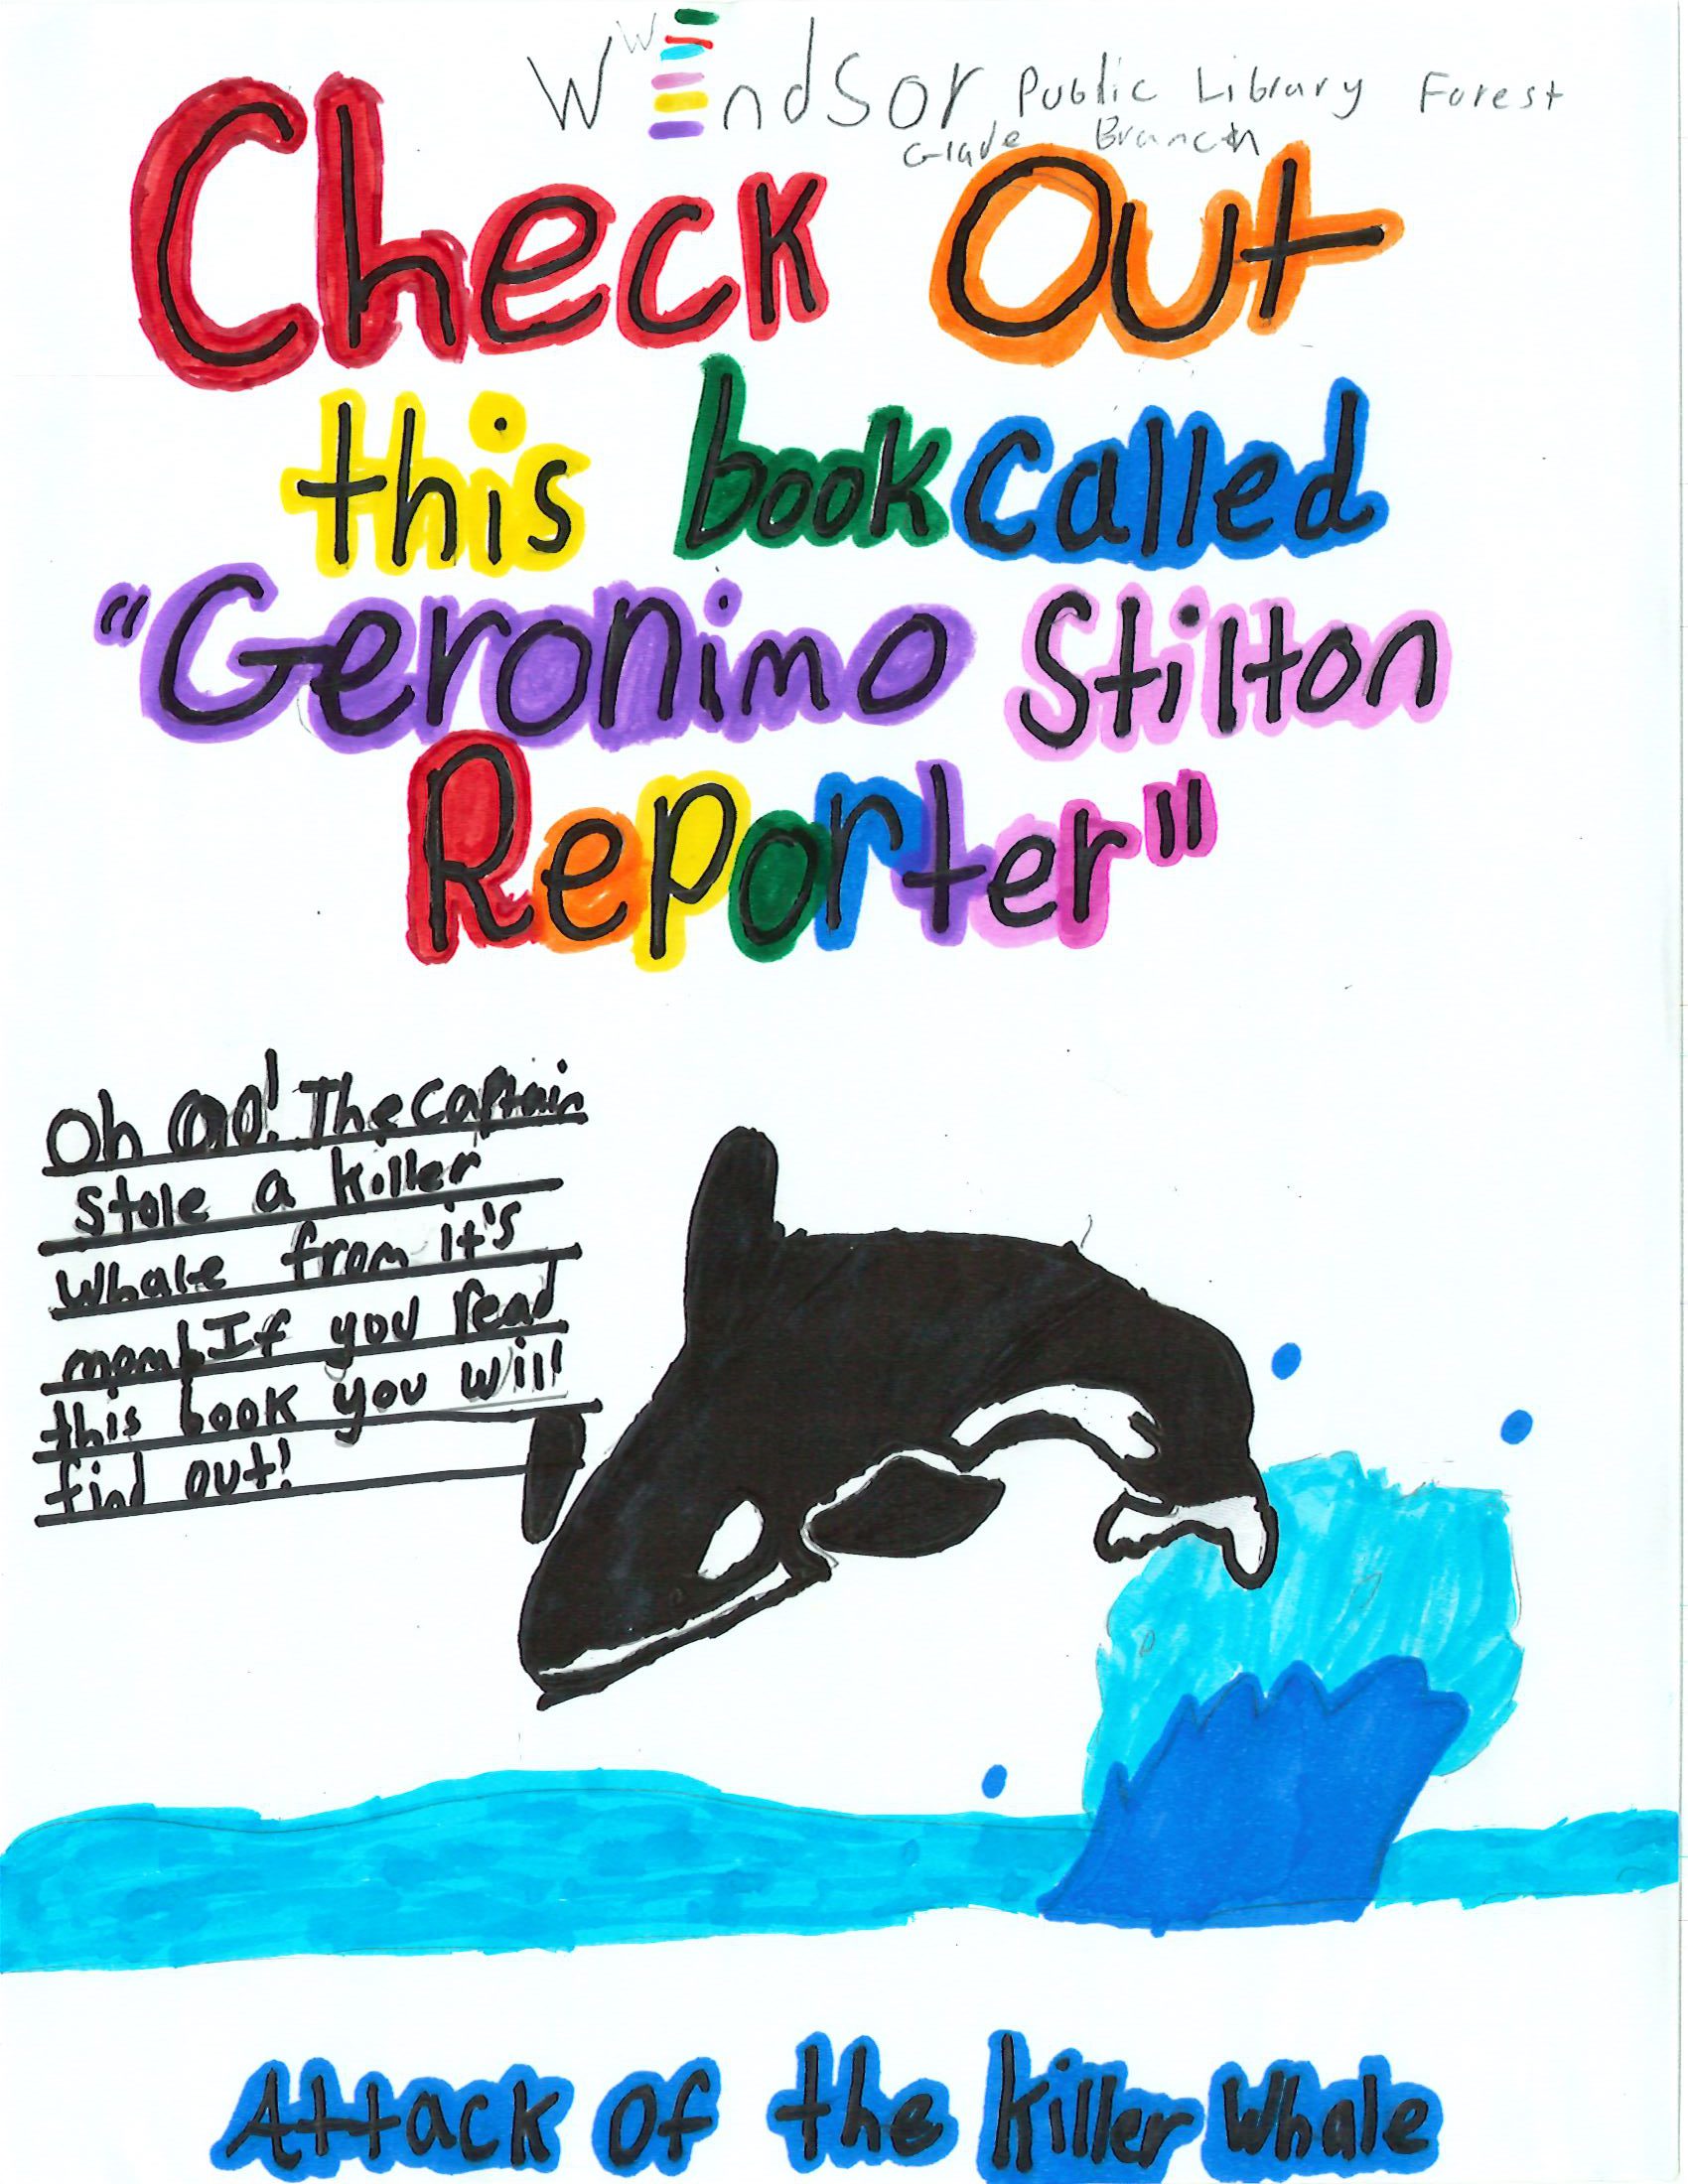 Windsor Public Library Forest
Glade Branch
Check Out
this book called
"Geronimo Stilton
Reporter"
Oh no! The captain
stole a killer
whale from it's
mom! If you read
this book you will
find out!
Attack of the killer Whale